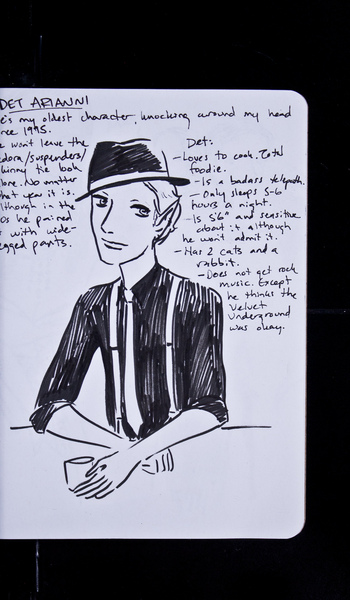 DET ARIANNI
e's my oldest character, knocking around my head
nce 1995.
e won't leave the
edora/suspenders/
kinny tie look
lone. No matter
hat year it is.
lthough in the
0s he paired
s with wide-
egged pants.
Det:
- Loves to cook. Total
foodie.
- Is a badass telepath.
- Only sleeps 5-6
hours a night.
- Is 5'6" and sensitive
about it although
he won't admit it.
- Has 2 cats and a
rabbit.
- Does not get rock
music. Except
he thinks the
Velvet
Underground
was okay.